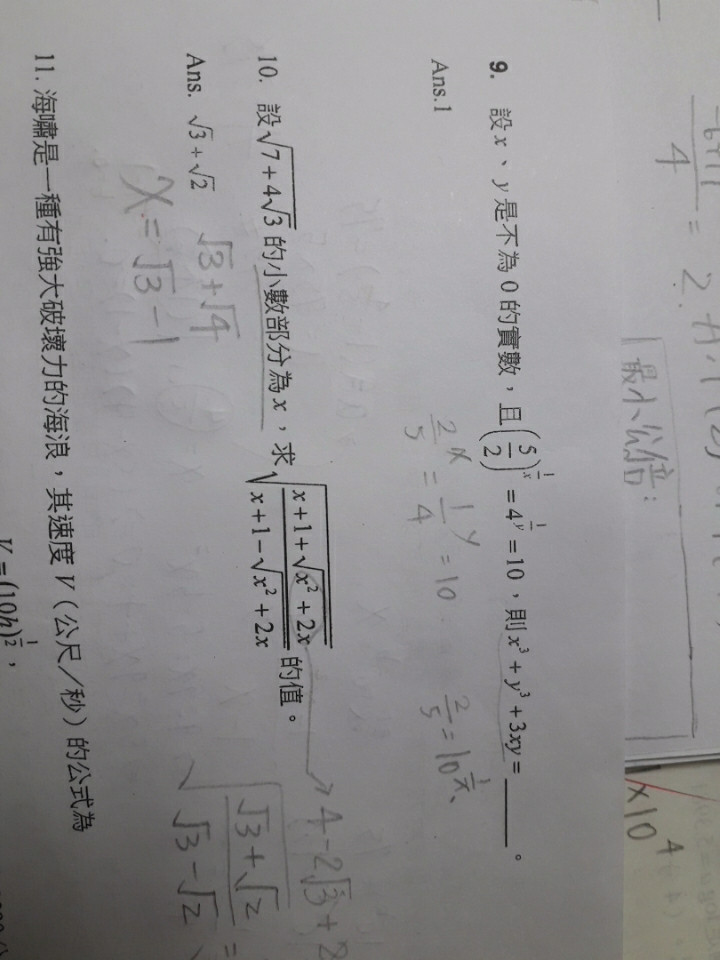 4
= 2.
最小公倍:
×10⁴
9. 設 x、y 是不為 0 的實數，且 (5/2)^(1/x) = 4^(1/y) = 10，則 x³ + y³ + 3xy = ______。
Ans.1
2/5 x = 1/4 y = 10
2/5 = 10^(1/x)、
10. 設 √(7 + 4√3) 的小數部分為 x，求 √((x + 1 + √(x² + 2x))/(x + 1 − √(x² + 2x))) 的值。
4 − 2√3 + 2
Ans. √3 + √2
√3 + √4
x = √3 − 1
√((√3 + √2)/(√3 − √2)) =
11. 海嘯是一種有強大破壞力的海浪，其速度 V（公尺／秒）的公式為
V = (10h)^(1/2)，